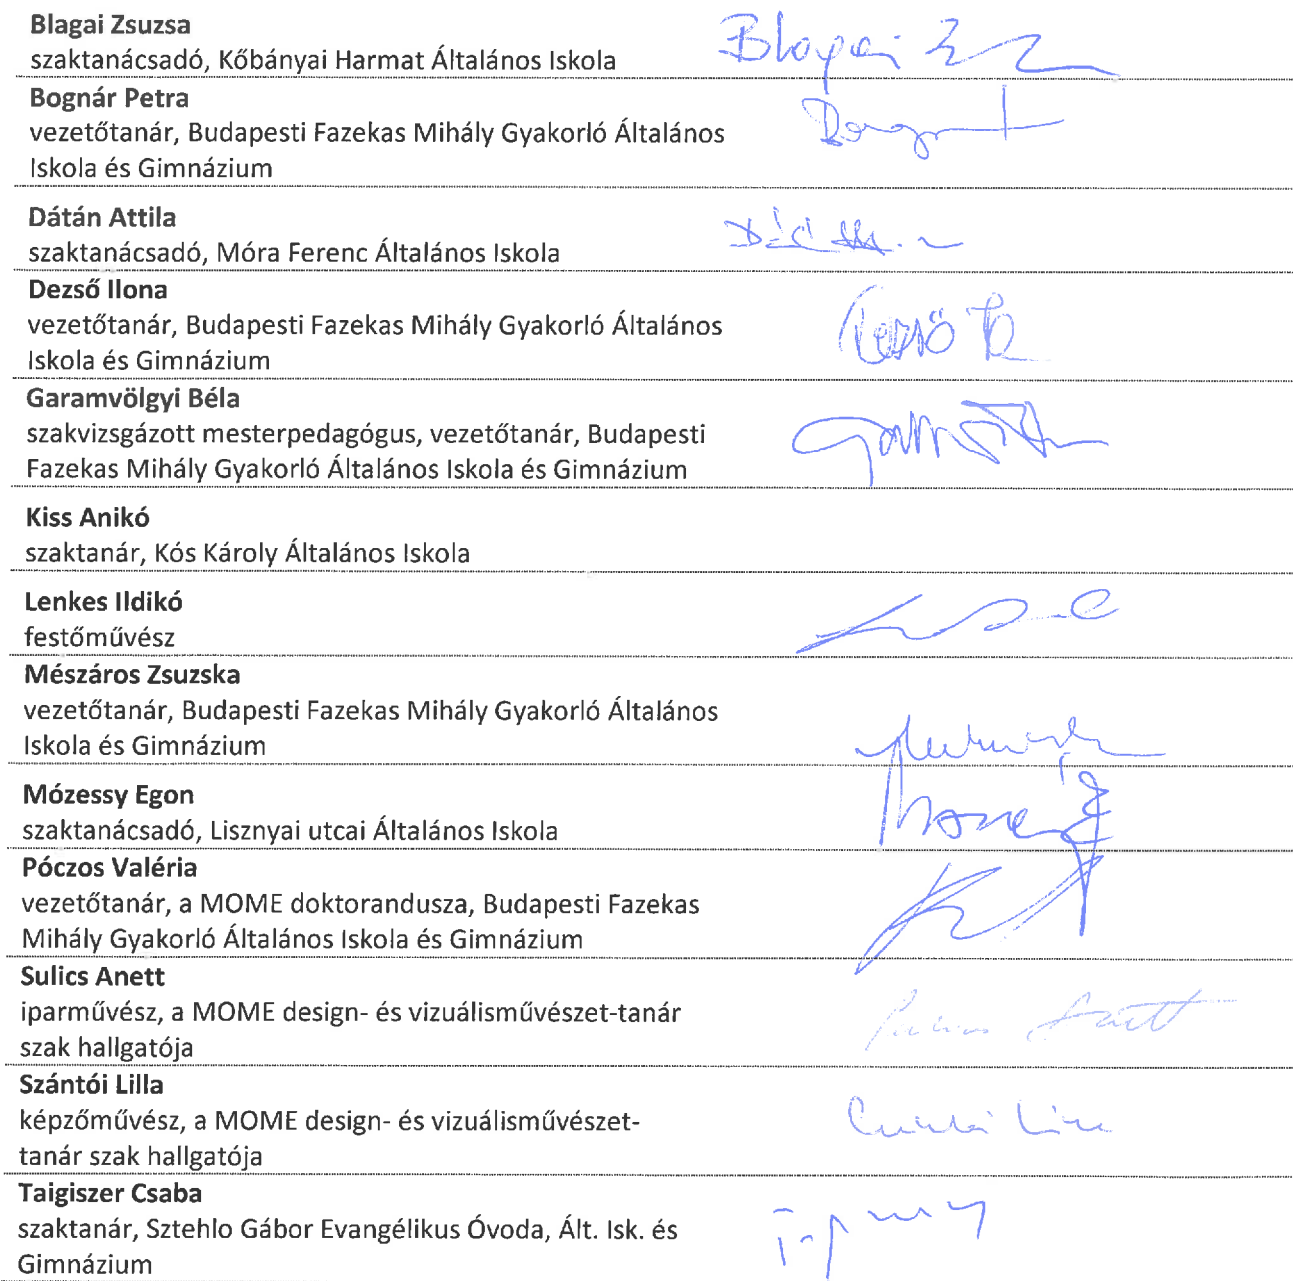 Blagai Zsuzsa
szaktanácsadó, Kőbányai Harmat Általános Iskola
Blagai
Bognár Petra
vezetőtanár, Budapesti Fazekas Mihály Gyakorló Általános
Iskola és Gimnázium
Dátán Attila
szaktanácsadó, Móra Ferenc Általános Iskola
Dezső Ilona
vezetőtanár, Budapesti Fazekas Mihály Gyakorló Általános
Iskola és Gimnázium
Dezső
Garamvölgyi Béla
szakvizsgázott mesterpedagógus, vezetőtanár, Budapesti
Fazekas Mihály Gyakorló Általános Iskola és Gimnázium
Kiss Anikó
szaktanár, Kós Károly Általános Iskola
Lenkes Ildikó
festőművész
Mészáros Zsuzska
vezetőtanár, Budapesti Fazekas Mihály Gyakorló Általános
Iskola és Gimnázium
Mózessy Egon
szaktanácsadó, Lisznyai utcai Általános Iskola
Póczos Valéria
vezetőtanár, a MOME doktorandusza, Budapesti Fazekas
Mihály Gyakorló Általános Iskola és Gimnázium
Sulics Anett
iparművész, a MOME design- és vizuálisművészet-tanár
szak hallgatója
Szántói Lilla
képzőművész, a MOME design- és vizuálisművészet-
tanár szak hallgatója
Taigiszer Csaba
szaktanár, Sztehlo Gábor Evangélikus Óvoda, Ált. Isk. és
Gimnázium